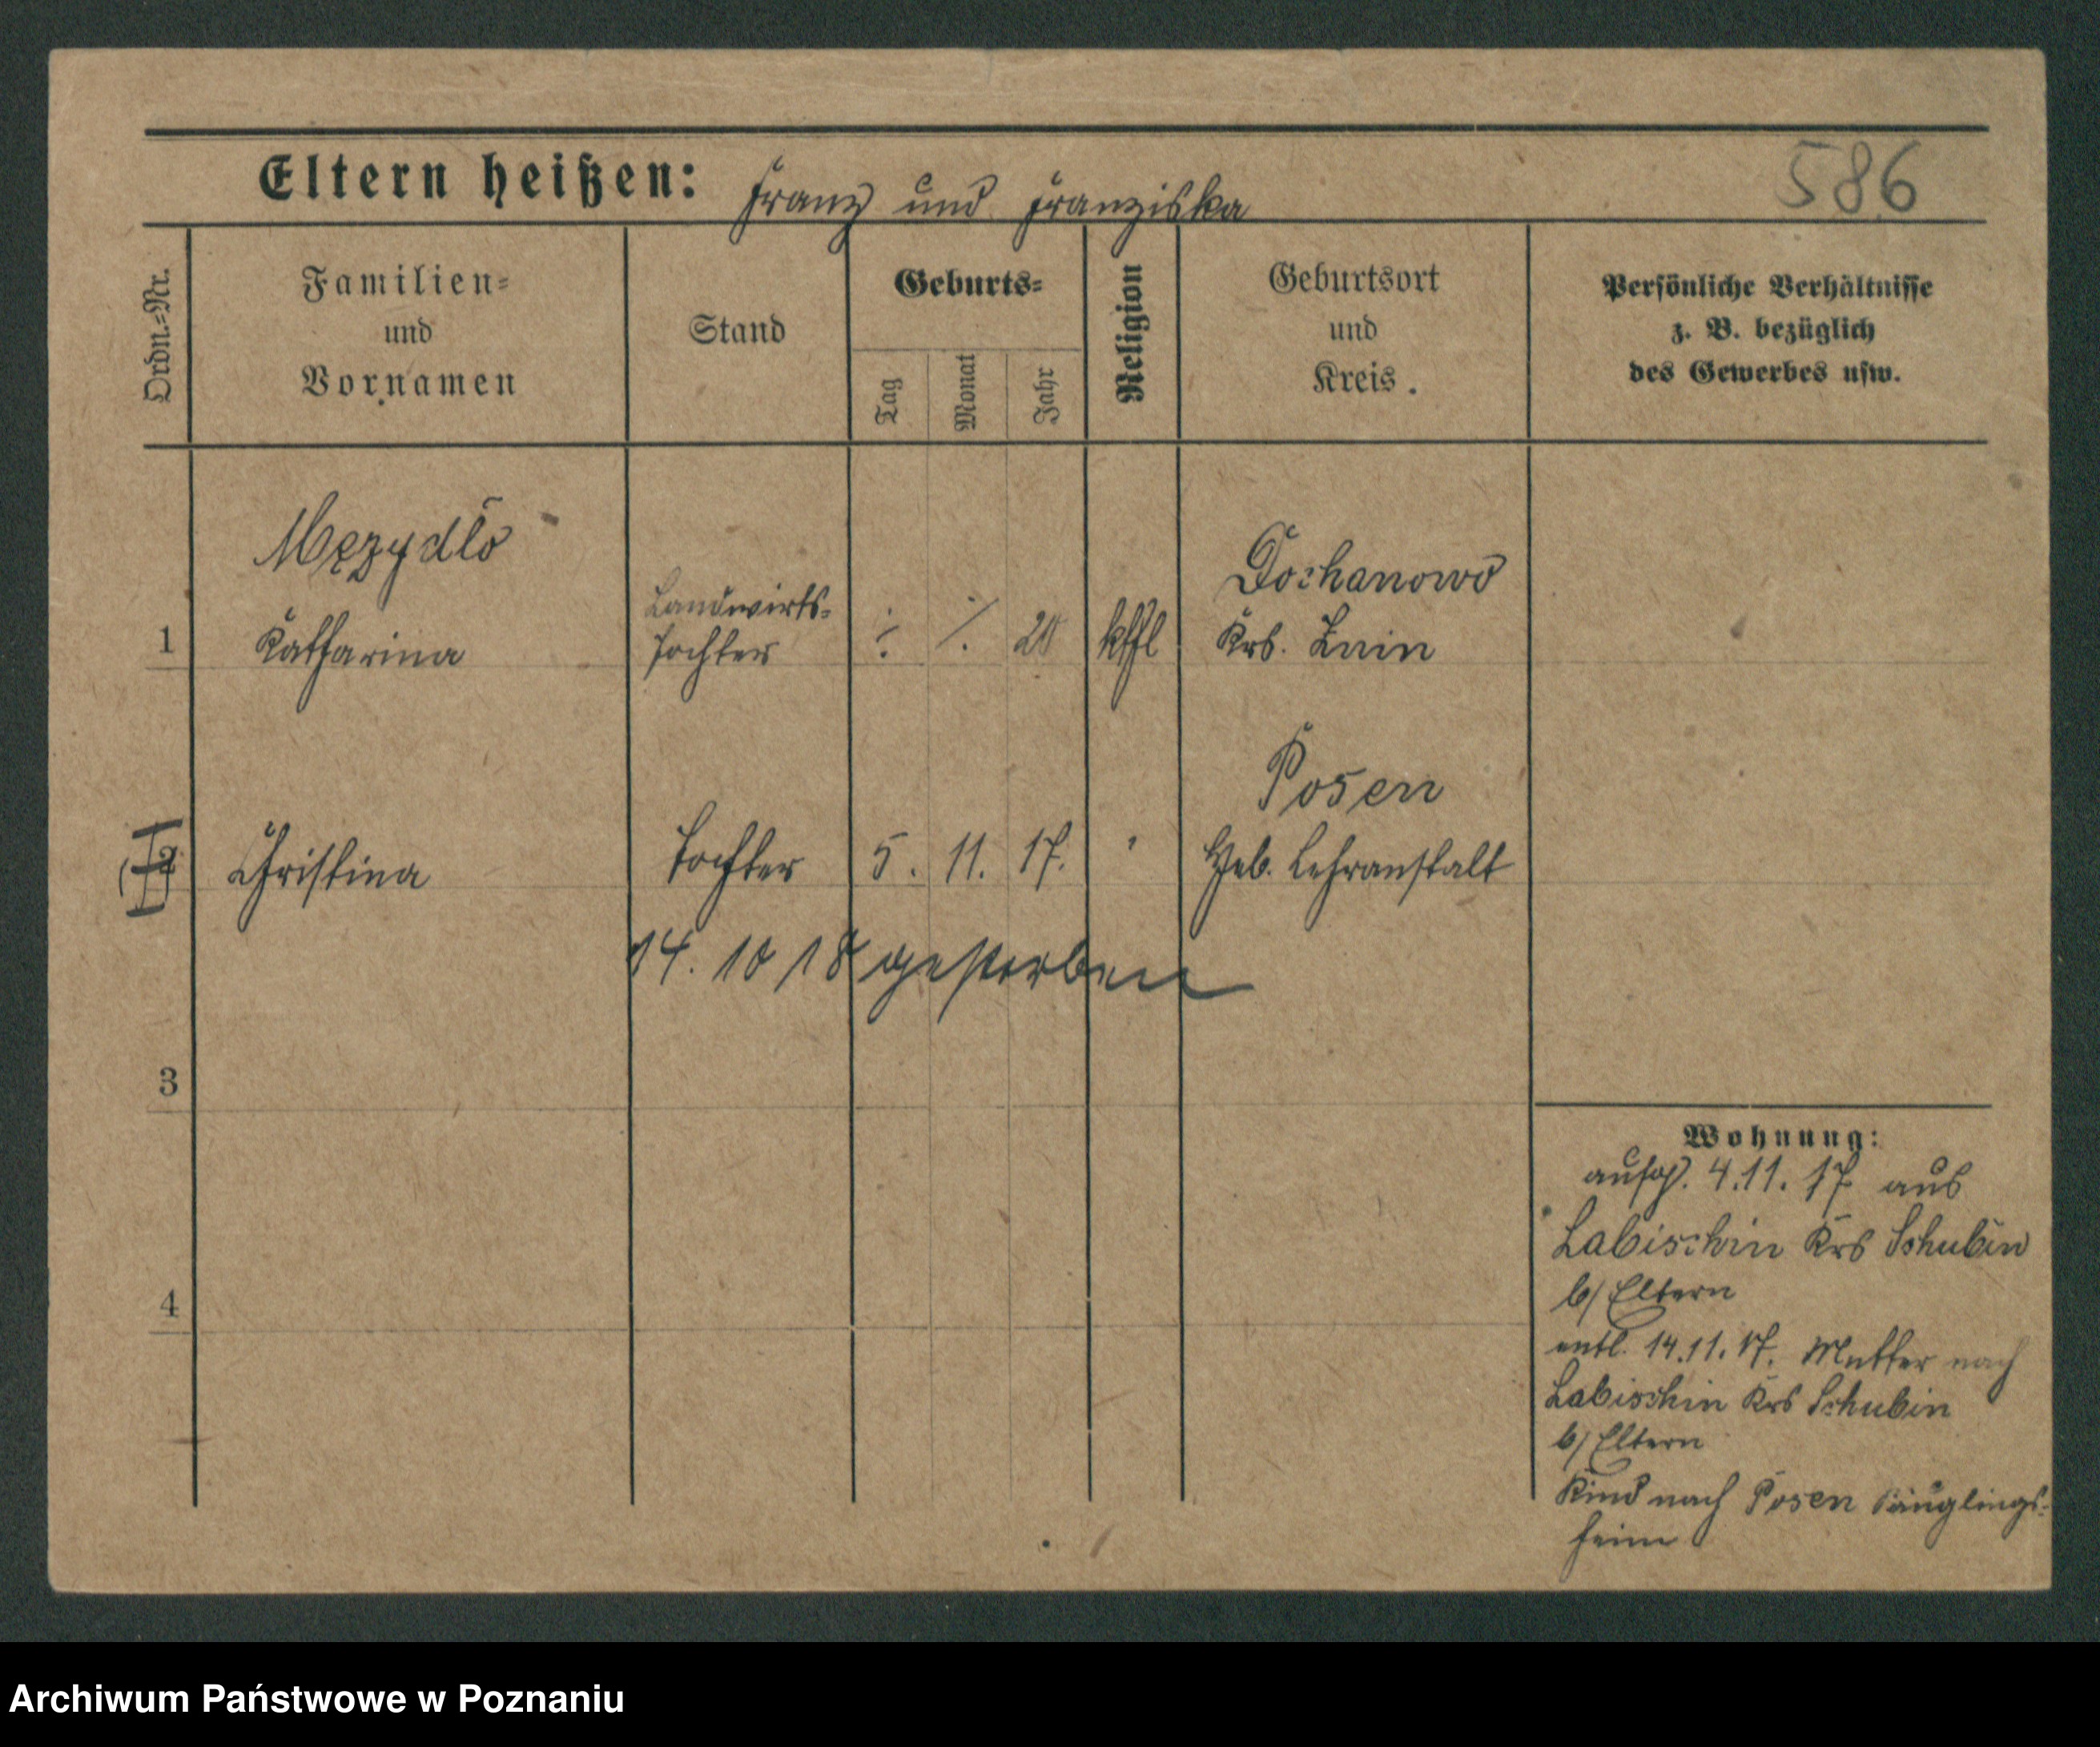 Eltern heißen: Franz und Franziska
586
Ordn.-Nr.
Familien-
und
Vornamen
Stand
Geburts-
Tag
Monat
Jahr
Religion
Geburtsort
und
Kreis.
Persönliche Verhältnisse
z. B. bezüglich
des Gewerbes usw.
Męzydlo
1
Katharina
Landwirts-
tochter
÷
·/.
20
kathl
Dochanowo
Krs. Znin
2
Christina
Tochter
5. 11. 17.
"
Posen
Heb. Lehranstalt
14. 10 18 gestorben
3
4
Wohnung:
aufg. 4.11.17 aus
Labischin Krs Schubin
b/ Eltern
entl. 14.11.17. Mutter nach
Labischin Krs Schubin
b/ Eltern
Kind nach Posen Säuglings-
heim
Archiwum Państwowe w Poznaniu